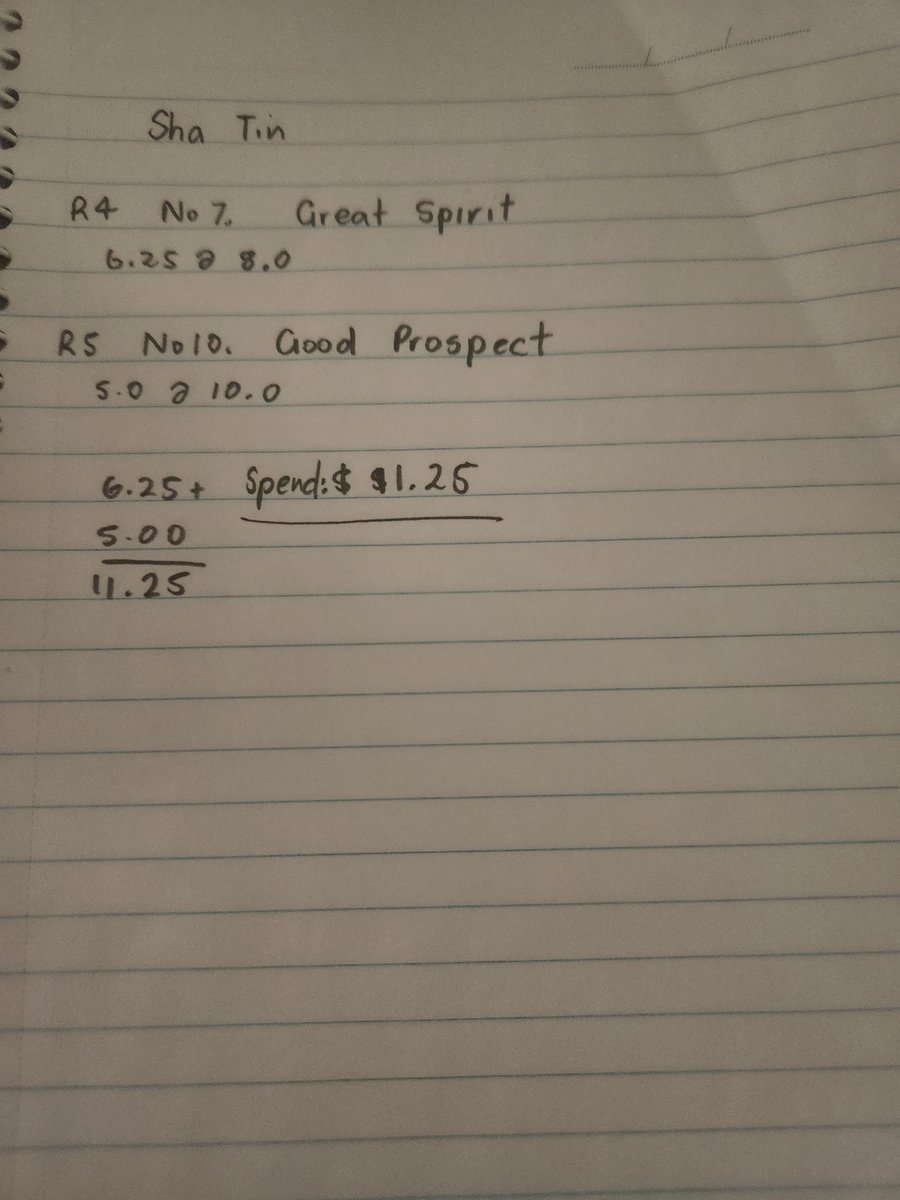 Sha Tin
R4 No 7. Great Spirit
6.25 @ 8.0
R5 No 10. Good Prospect
5.0 @ 10.0
6.25+ Spend: $ 11.25
5.00
11.25